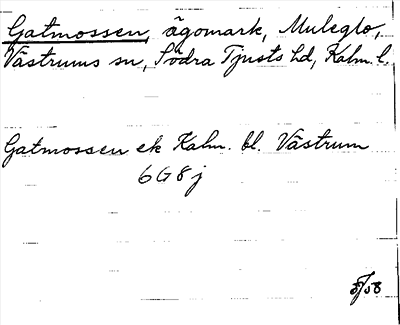 Gatmossen, ägomark, Muleglo,
Västrums sn, Södra Tjusts hd, Kalm. l.
Gatmossen ek Kalm. bl. Västrum
6G8j
5/58